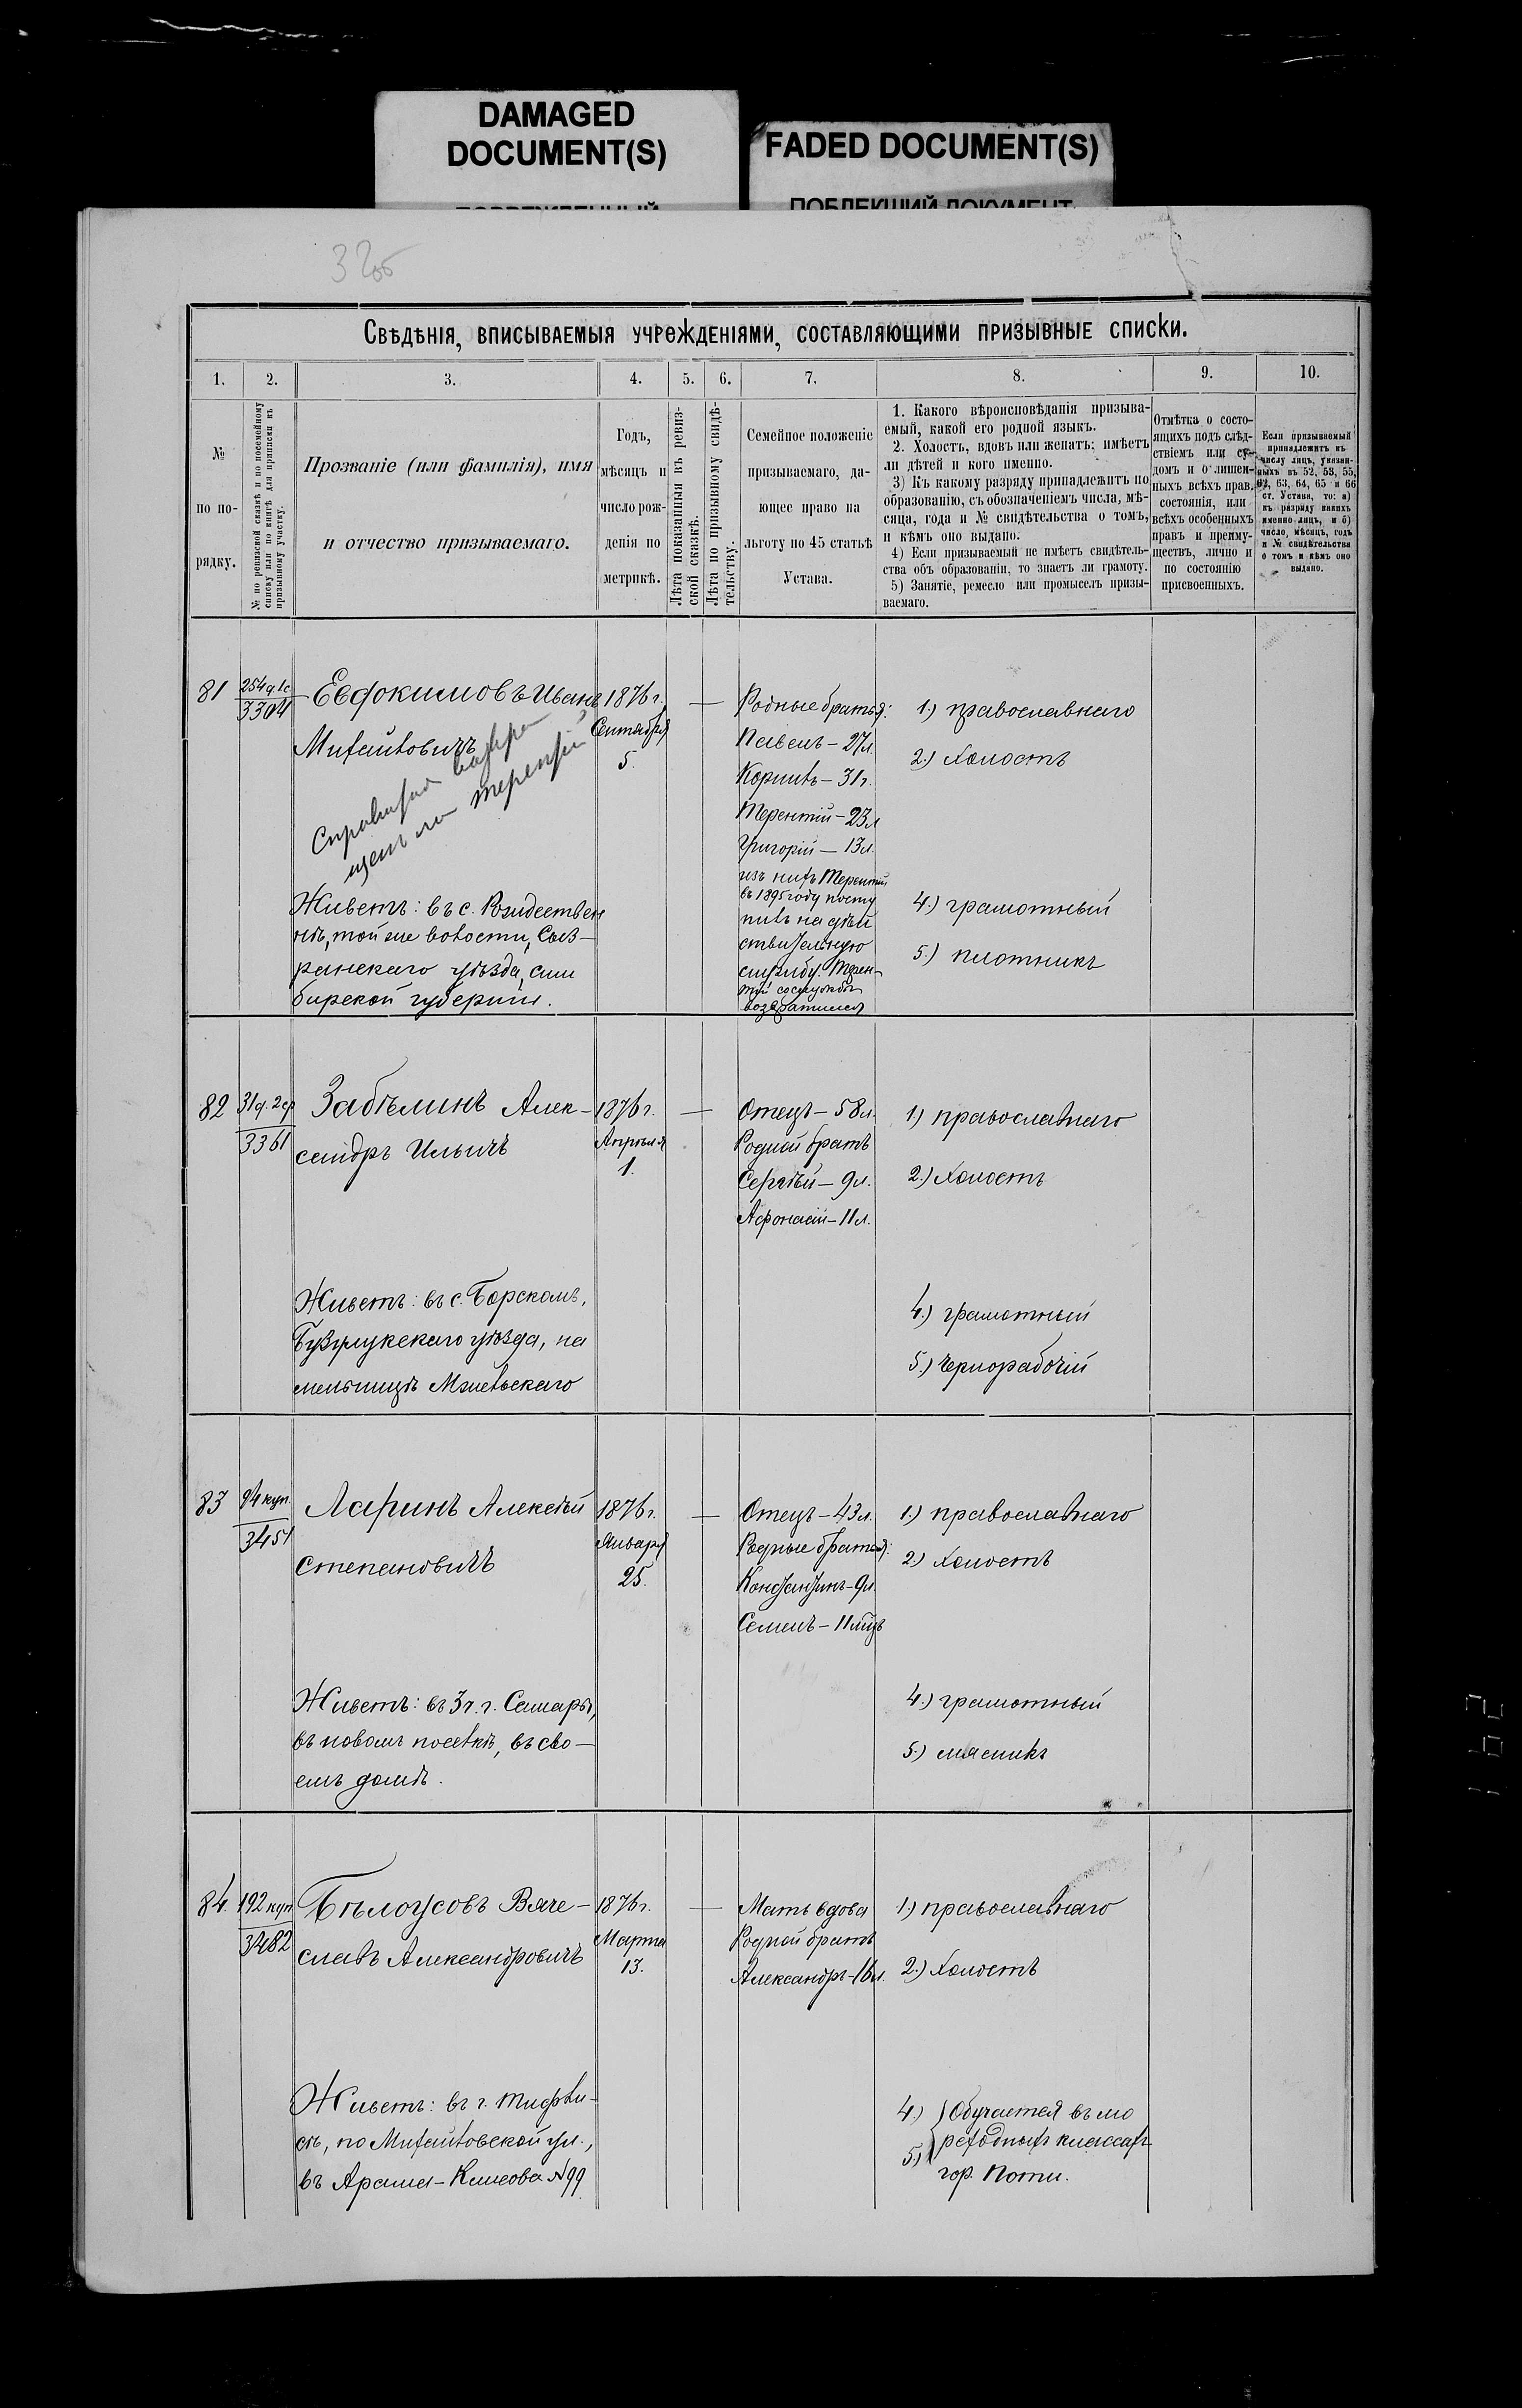 DAMAGED
DOCUMENT(S)
FADED DOCUMENT(S)
ПОВРЕЖДЕННЫЙ
ПОБЛЕКШИЙ ДОКУМЕНТ
32об
Свѣдѣнія, вписываемыя учрежденіями, составляющими призывные списки.
1. 2. 3. 4. 5. 6. 7. 8. 9. 10.
№
по по-
рядку.
№ по ревизской сказкѣ и по посемейному
списку или по книгѣ для приписки къ
призывному участку.
Прозваніе (или фамилія), имя
и отчество призываемаго.
Годъ,
мѣсяцъ и
число рож-
денія по
метрикѣ.
Лѣта показанныя въ ревиз-
ской сказкѣ.
Лѣта по призывному свидѣ-
тельству.
Семейное положеніе
призываемаго, да-
ющее право на
льготу по 45 статьѣ
Устава.
1. Какого вѣроисповѣданія призыва-
емый, какой его родной языкъ.
2. Холостъ, вдовъ или женатъ; имѣетъ
ли дѣтей и кого именно.
3) Къ какому разряду принадлежитъ по
образованію, съ обозначеніемъ числа, мѣ-
сяца, года и № свидѣтельства о томъ,
и кѣмъ оно выдано.
4) Если призываемый не имѣетъ свидѣтель-
ства объ образованіи, то знаетъ ли грамоту.
5) Занятіе, ремесло или промыселъ призы-
ваемаго.
Отмѣтка о состо-
ящихъ подъ слѣд-
ствіемъ или су-
домъ и о лишен-
ныхъ всѣхъ прав.
состоянія, или
всѣхъ особенныхъ
правъ и преиму-
ществъ, лично и
по состоянію
присвоенныхъ.
Если призываемый
принадлежитъ къ
числу лицъ, указан-
ныхъ въ 52, 53, 55,
62, 63, 64, 65 и 66
ст. Устава, то: а)
къ разряду какихъ
именно лицъ, и б)
число, мѣсяцъ, годъ
и № свидѣтельства
о томъ и кѣмъ оно
выдано.
81
254 ч. 1с
3304
Евдокимовъ Иванъ
Михайловичъ
Терентій
Живетъ: въ с. Рождествен
нѣ, той же волости, Сыз-
ранскаго уѣзда, Сим
бирской губерніи.
1876 г.
Сентября
5.
—
Родные братья:
Павелъ – 27 л.
Корнилъ – 31 г.
Терентій – 23 л
Григорій – 13 л.
изъ нихъ Терентій
въ 1895 году посту
пилъ на дѣй
ствительную
службу. Терен-
тій со службы
возвратился
1.) православнаго
2.) Холостъ
4.) грамотный
5.) плотникъ
82
31 ч. 2 ср
3361
Забѣлинъ Алек-
сандръ Ильичъ
Живетъ: въ с. Борскомъ,
Бузулукскаго уѣзда, на
мельницѣ
1876 г.
Апрѣля
1.
—
Отецъ – 58 л.
Родной братъ
Сергѣй – 9 л.
Афонасій – 11 л.
1) православнаго
2.) Холостъ
4.) грамотный
5.) Чернорабочій
83
94 куп.
3451
Ларинъ Алексѣй
Степановичъ
Живетъ: въ 3 ч. г. Самары,
въ новомъ поселкѣ, въ сво-
емъ домѣ.
1876 г.
Января
25.
—
Отецъ – 43 л.
Родные братья:
Константинъ – 9 л.
Семенъ – 11 мѣс
1.) православнаго
2) Холостъ
4.) грамотный
5.) мясникъ
84.
192 куп
3482
Бѣлоусовъ Вяче-
славъ Александровичъ
Живетъ: въ г. Тифли-
сѣ, по Михайловской ул.,
въ № 99
1876 г.
Марта
13.
—
Мать вдова
Родной братъ
Александръ – 16 л.
1.) православнаго
2.) Холостъ
4.) Обучается въ мо
5.) реходныхъ классахъ
гор. Поти.